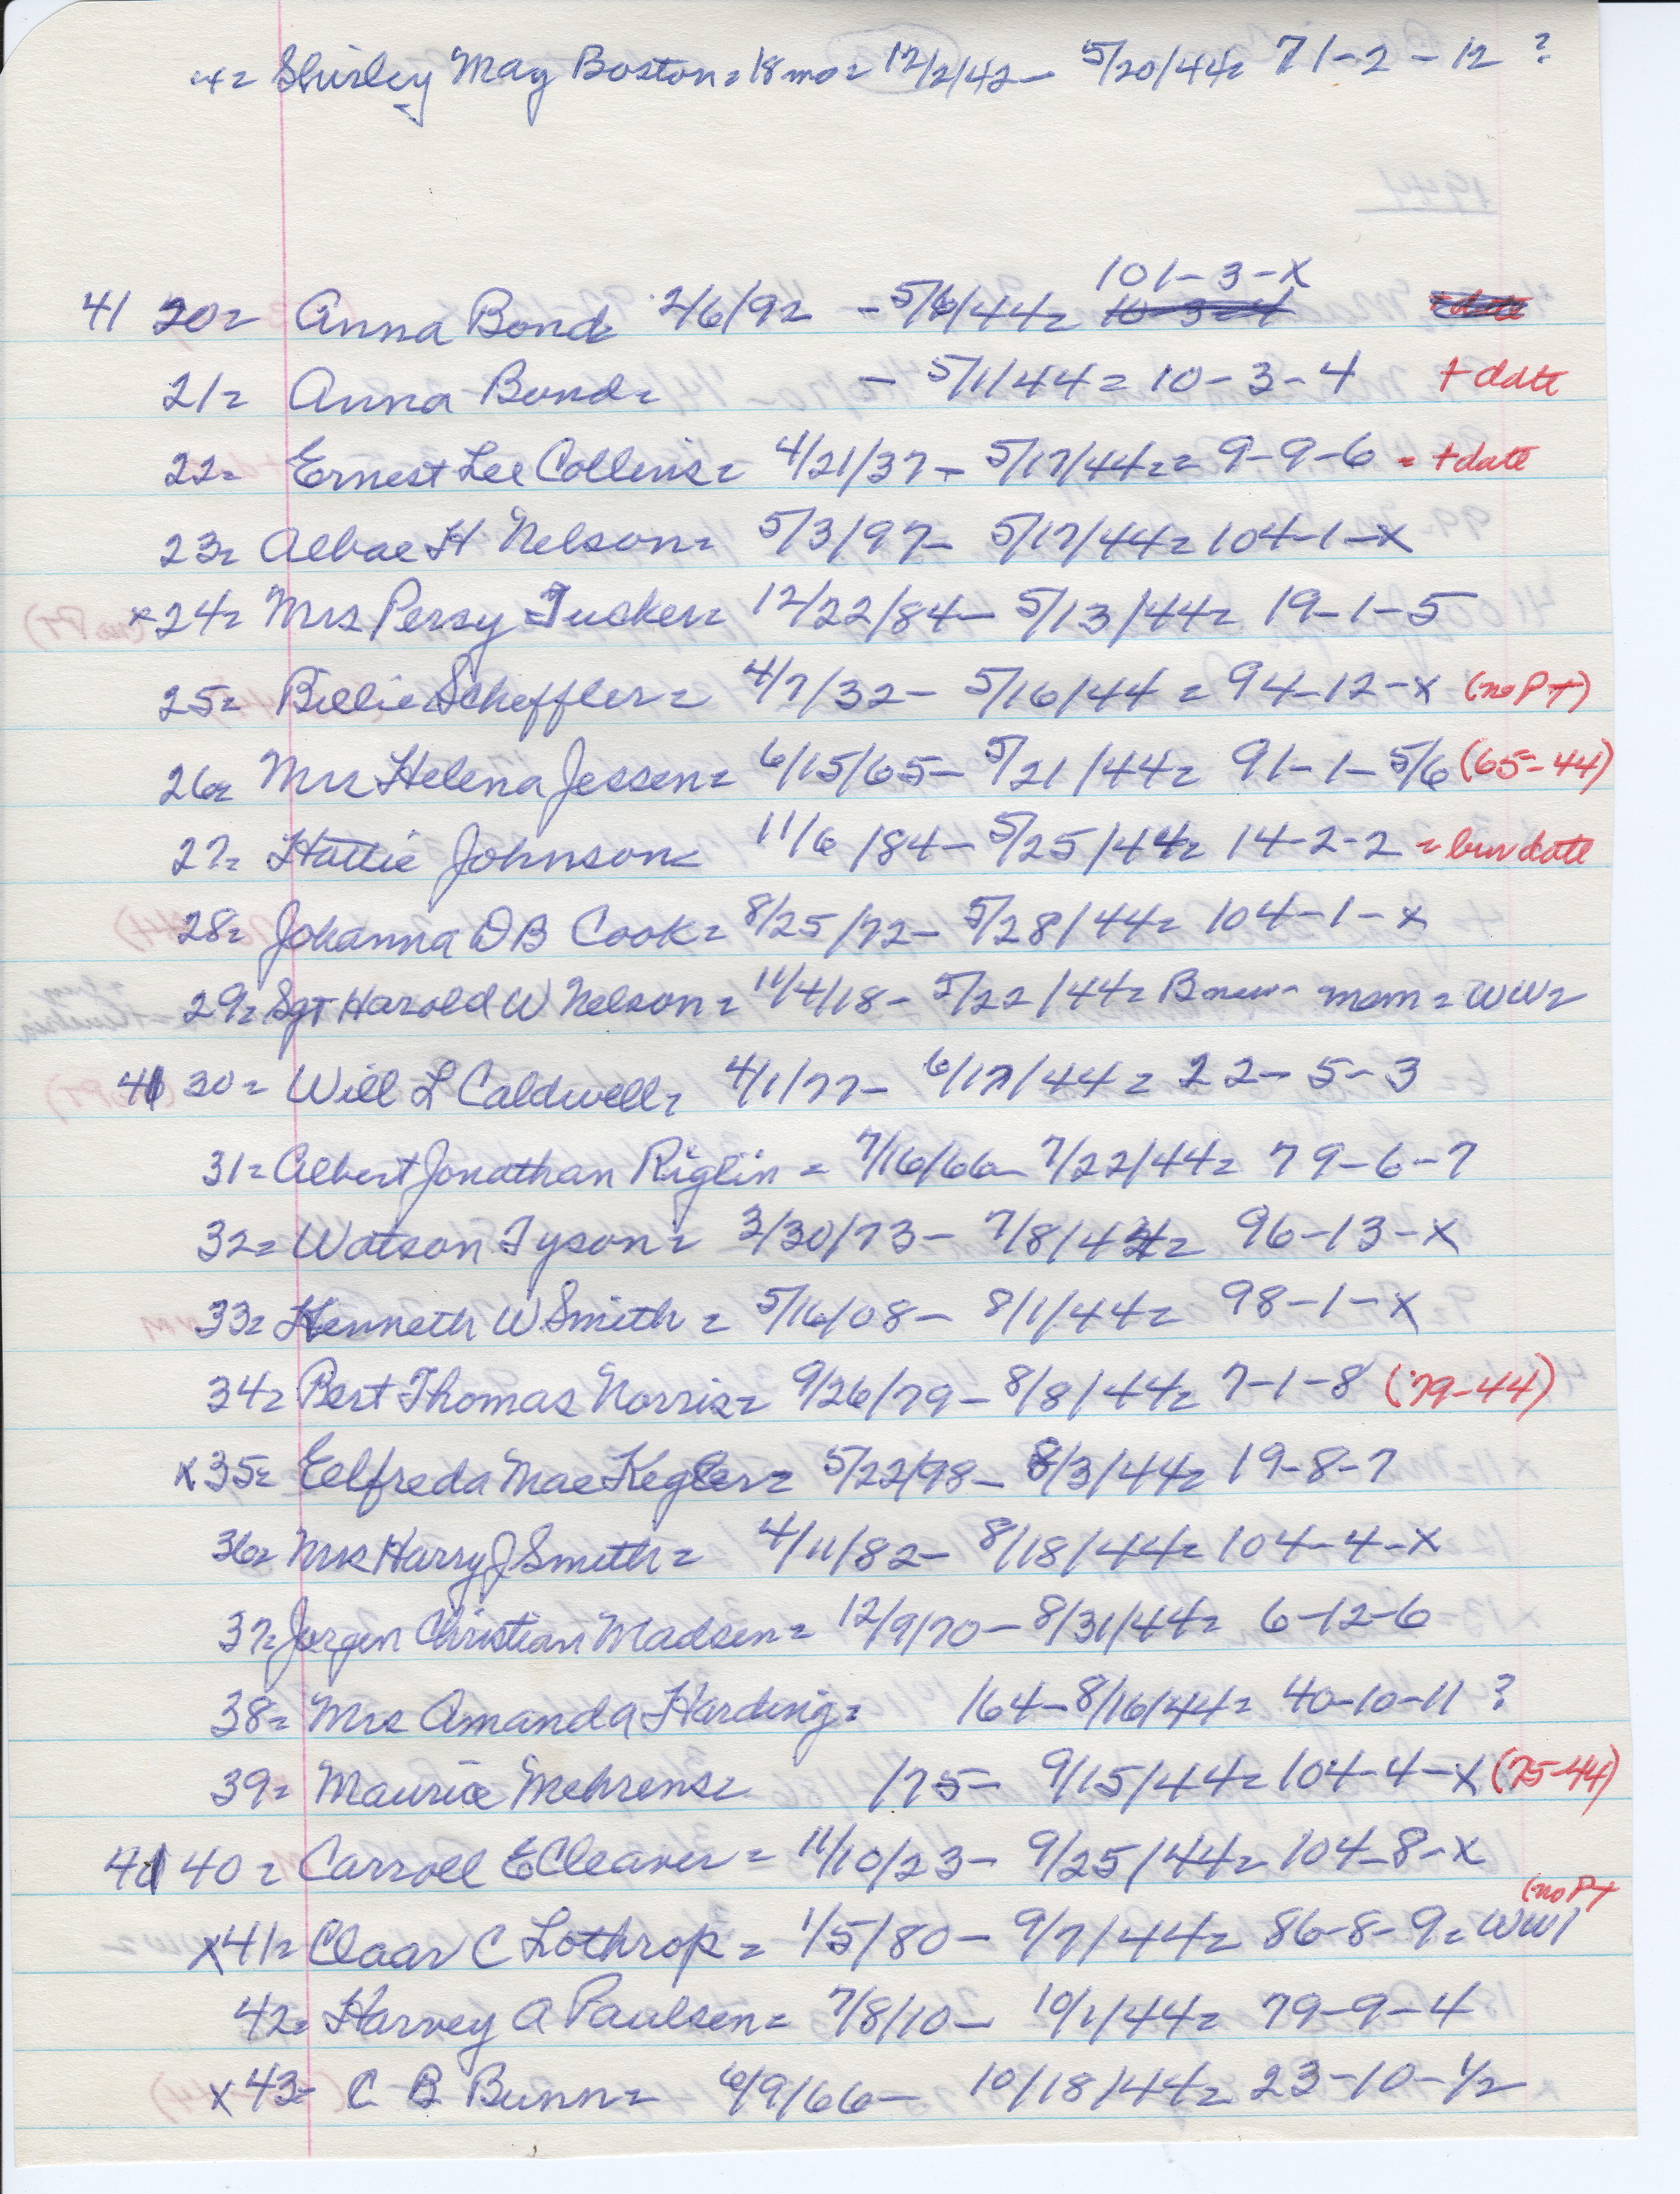 4= Shirley May Boston = 18 mo = 12/2/42 - 5/20/44 = 71-2-12 ?
1944
101-3-X
41 20= Anna Bond 2/6/92 - 5/6/44 = 10-3-4 +date
21= Anna Bond= - 5/1/44 = 10-3-4 +date
22= Ernest Lee Collins= 4/21/37 - 5/17/44 = = 9-9-6 = +date
23= Albae H Nelson= 5/3/97 - 5/17/44 = 104-1-X
x24= Mrs Persy Tucker= 12/22/84 - 5/13/44 = 19-1-5
25= Billie Scheffler= 4/7/32 - 5/16/44 = 94-12-X (no PT)
26= Mrs Helena Jessen= 6/15/65 - 5/21/44 = 91-1-5/6 (65-44)
27= Hattie Johnson= 11/6/84 - 5/25/44 = 14-2-2 = bur date
28= Johanna D B Cook= 8/25/72 - 5/28/44 = 104-1-X
29= Sgt Harold W Nelson= 11/4/18 - 5/22/44 = B new - mem = WW2
41 30= Will L Caldwell= 4/1/77 - 6/17/44 = 22-5-3
31= Albert Jonathan Riglin = 7/16/66 - 7/22/44 = 79-6-7
32= Watson Tyson= 3/30/73 - 7/8/44 = 96-13-X
33= Kenneth W Smith = 5/16/08 - 8/1/44 = 98-1-X
34= Bert Thomas Norris= 9/26/79 - 8/8/44 = 7-1-8 ('79-44)
x35= Eelfreda Mae Kegler= 5/22/98 - 8/3/44 = 19-8-7
36= Mrs Harry J Smith = 4/11/82 - 8/18/44 = 104-4-X
37= Jorgen Christian Madsen= 12/9/70 - 8/31/44 = 6-12-6
38= Mrs Amanda Harding= /64 - 8/16/44 = 40-10-11 ?
39= Maurice Mehrens= /75 - 9/15/44 = 104-4-X (75-44)
41 40 = Carroll E Cleaver = 11/10/23 - 9/25/44 = 104-8-X
(no PT
x41= Claar C Lothrop = 1/5/80 - 9/7/44 = 86-8-9 = WW1
42= Harvey A Paulsen= 7/8/10 - 10/1/44 = 79-9-4
x43= C B Bunn= /9/66 - 10/18/44 = 23-10-1/2